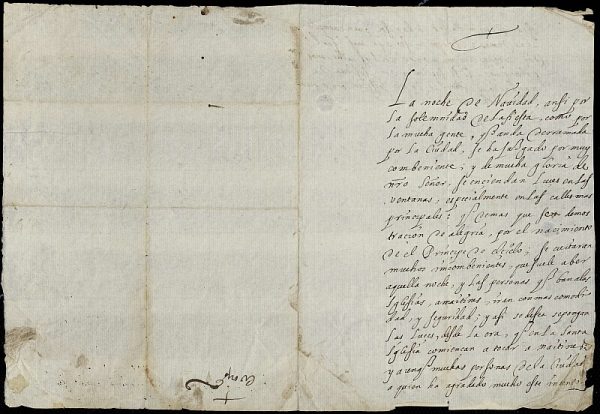 La noche de Navidad, ansi por
la solemnidad de la fiesta, como por
la mucha gente, q̃ anda derramada
por la Ciudad, se ha juzgado por muy
combeniente; y de mucha gloria de
nr̃o Señor, se enciendan luces en las
ventanas, especialmente en las calles mas
principales: q̃ demas que sera demos
tracion de alegria, por el nacimiento
de el Principe de el cielo; se euitaran
muchos incombenientes, que suele aber
aquella noche, y las personas q̃ van a las
Iglesias, a maitines, iran con mas comodi
dad, y seguridad; y asi se desea se pongan
las luces, desde la ora, q̃ en la Sancta
Iglesia comiençan a tocar a maitines
y a unas muchas personas de la Ciudad
a quien ha agradado mucho este